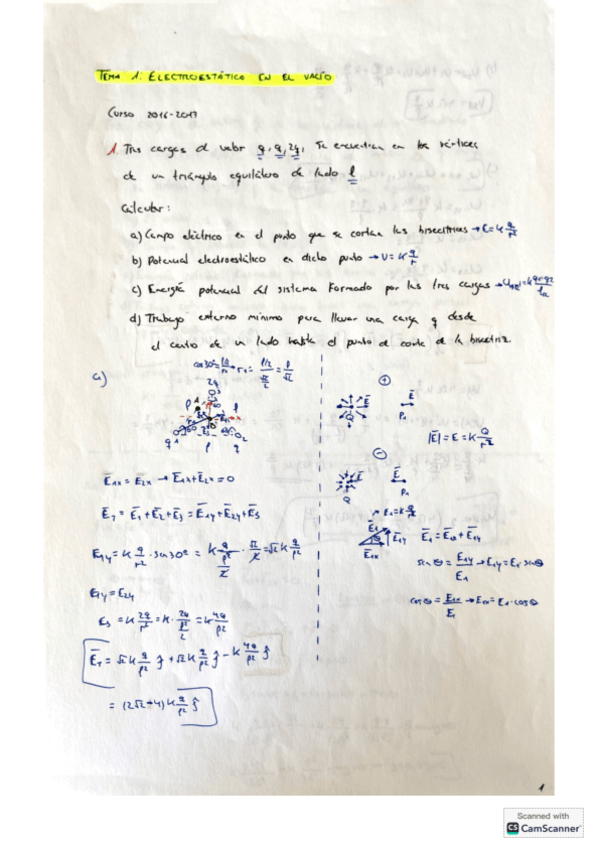 TEMA 1: ELECTROESTÁTICO EN EL VACÍO
Curso 2016-2017
1. Tres cargas de valor q, q, 2q, se encuentran en los vértices
de un triángulo equilátero de lado l.
Calcular:
a) Campo eléctrico en el punto que se cortan las bisectrices → E=K q/r²
b) Potencial electroestático en dicho punto → V=K q/r
c) Energía potencial del sistema formado por las tres cargas →
d) Trabajo externo mínimo para llevar una carga q desde
el centro de un lado hasta el punto de corte de la bisectriz.
a)
E̅1x = E̅2x → E̅1x+E̅2x=0
E̅T = E̅1+E̅2+E̅3 = E̅1y+E̅2y+E̅3
E1y = E2y
= (2√2-4) K q/l² ĵ
+
E̅
E̅
Q
P1
|E̅| = E = K Q/r²
-
E̅
E̅
Q
P1
E1=K q/r²
E̅1
E̅1y
E̅1x
E̅1 = E̅1x+E̅1y
sen θ = E1y/E1 → E1y = E1·senθ
cos θ = E1x/E1 → E1x = E1·cosθ
1
Scanned with
CS CamScanner